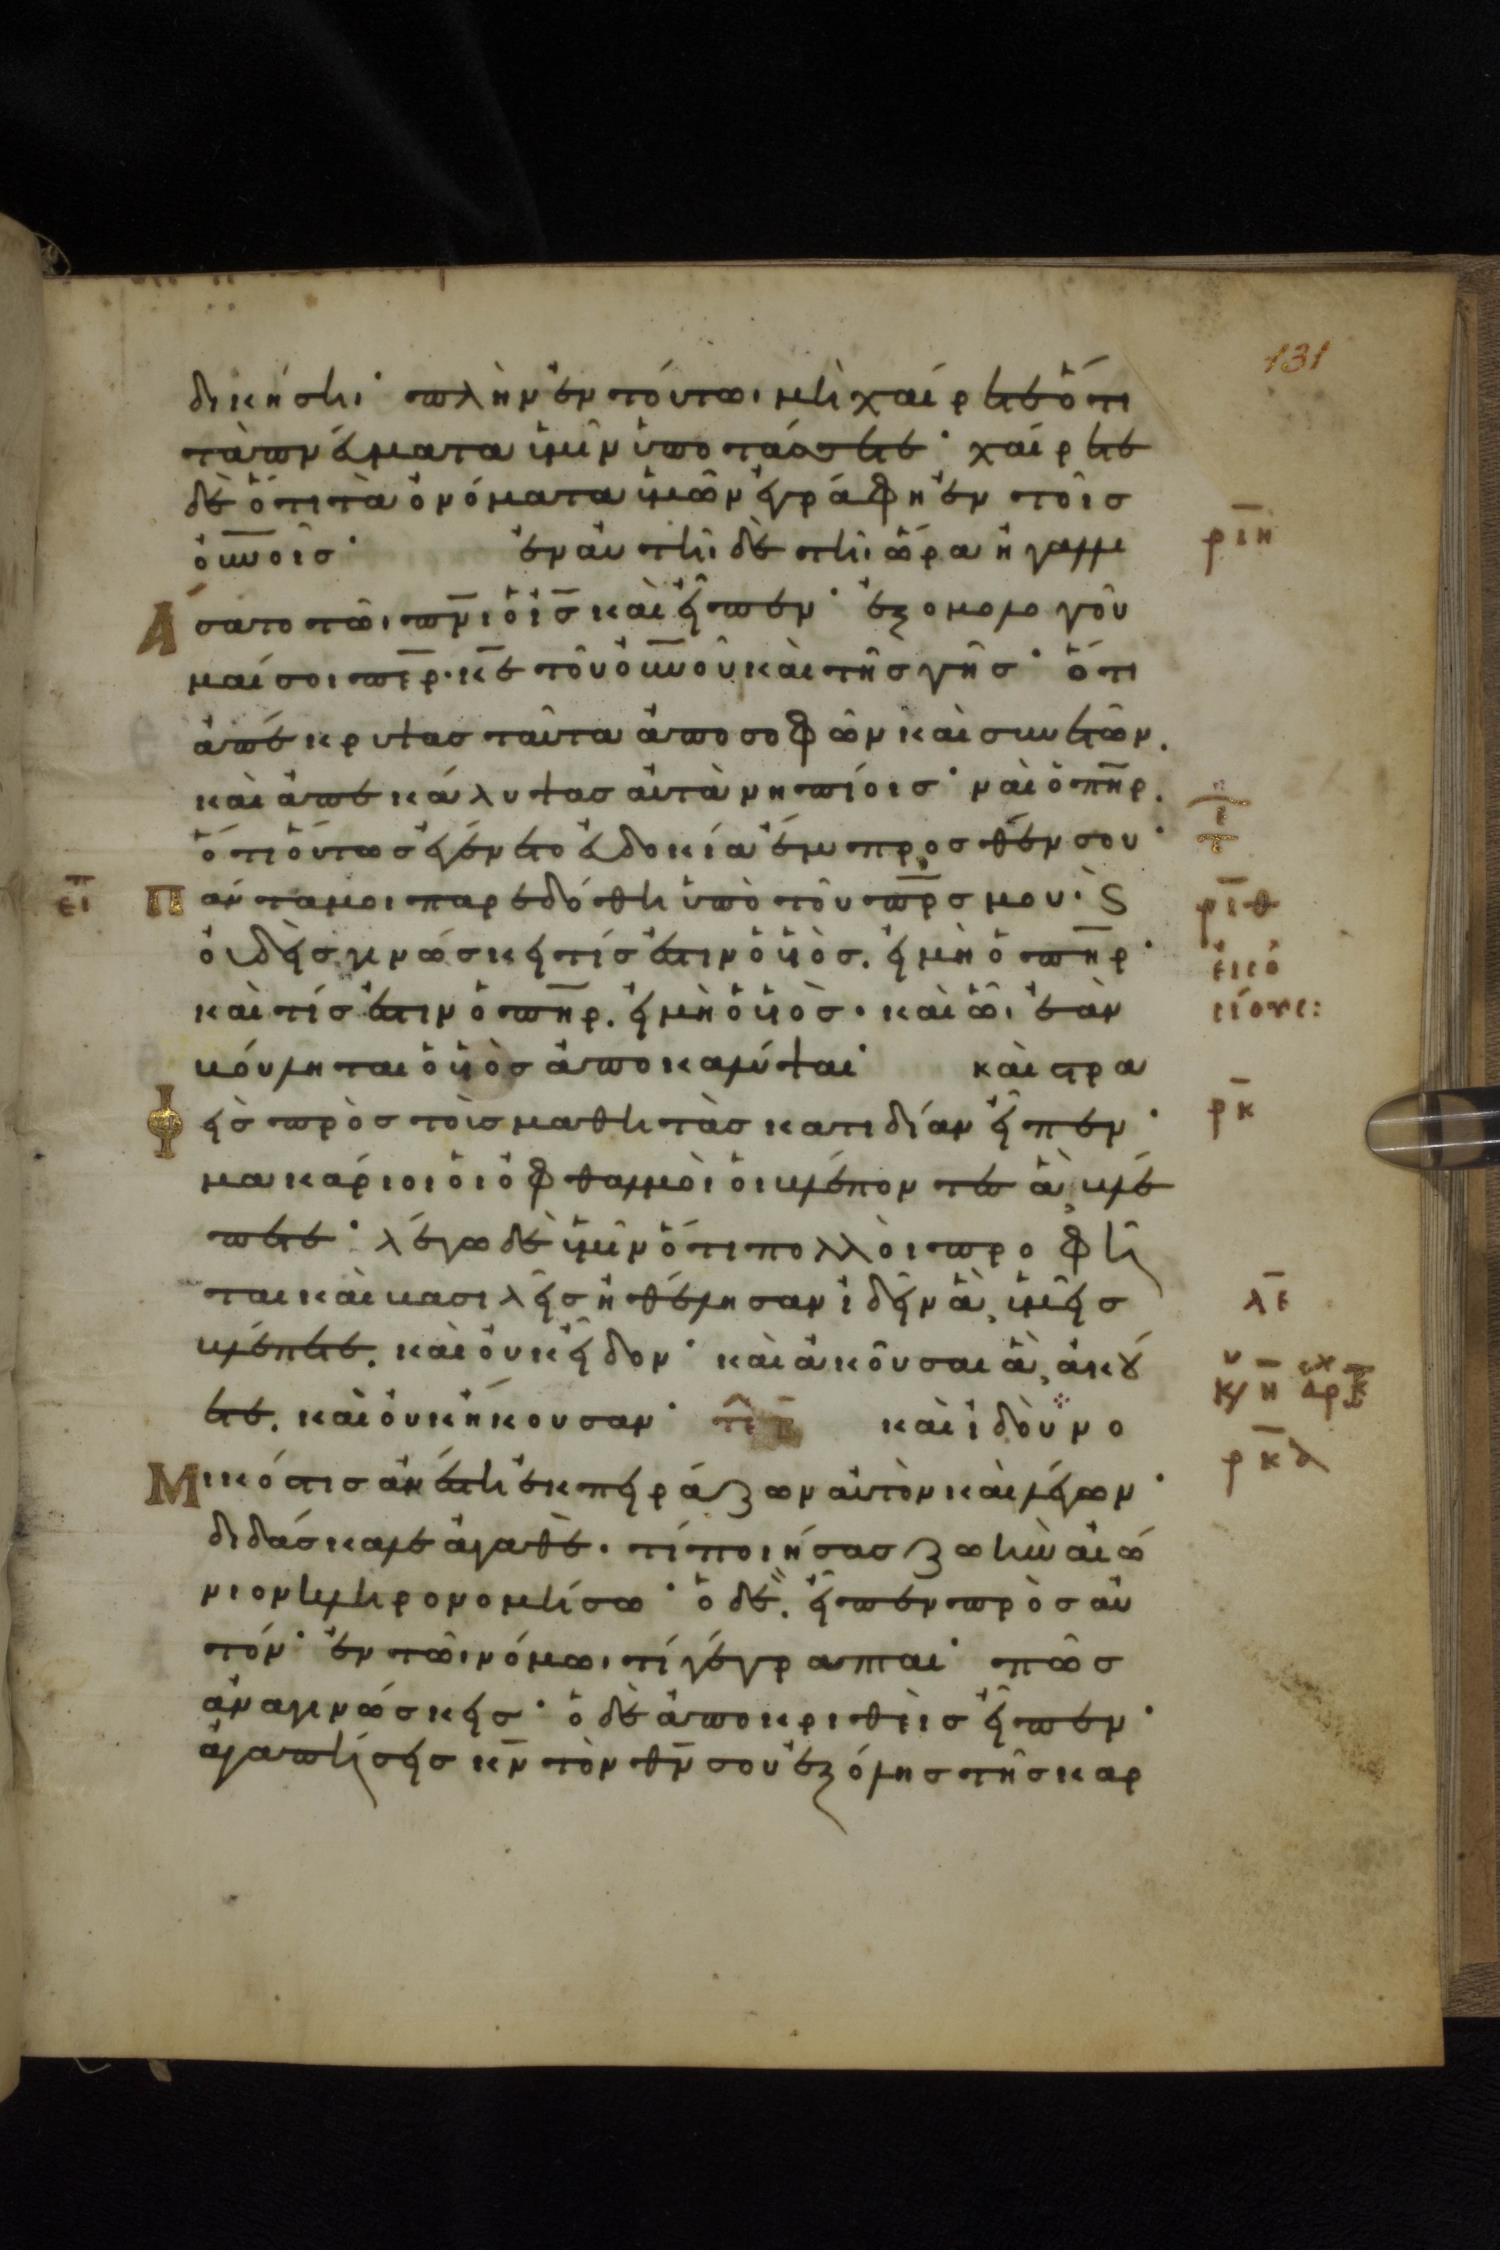 131
δικήσῃ· πλὴν ἐν τούτωι μὴ χαίρετε ὅτι
τὰ πνεύματα ὑμῖν ὑποτάσσεται· χαίρετε
δὲ ὅτι τὰ ὀνόματα ὑμῶν ἐγράφη ἐν τοῖς
οὐνοῖς· ἐν αὐτῆι δὲ τῆι ὥρα ἠγαλλι
ριη
άσατο τῶι πνι ὁ ις καὶ εἶπεν· ἐξομολογοῦ
μαί σοι περ· κε τοῦ οὐνοῦ καὶ τῆς γῆς· ὅτι
ἀπέκρυψας ταῦτα ἀπο σοφῶν καὶ συνετῶν.
καὶ ἀπεκάλυψας αὐτὰ νηπίοις· ναὶ ὁ πηρ.
ὅτι οὕτως ἐγένετο εὐδοκία ἔμπροσθέν σου·
ει
Πάντα μοι παρεδόθη ὑπὸ τοῦ πρς μου· ϛ
ριθ
οὐδεὶς γινώσκει τίς ἐστιν ὁ υἱὸς. εἰ μὴ ὁ πηρ·
καὶ τίς ἐστιν ὁ πηρ. εἰ μὴ ὁ υἱὸς· καὶ ὧι ἐὰν
βούληται ὁ υἱὸς ἀποκαλύψαι· καὶ στρα
φεὶς πρὸς τοὺς μαθητὰς κατιδίαν εἶπεν·
ρκ
μακάριοι οἱ ὀφθαλμοὶ οἱ βλέποντες ἃ βλέ
πετε· λέγω δὲ ὑμῖν ὅτι πολλοὶ προφῆ
ται καὶ βασιλεῖς ἠθέλησαν ἰδεῖν ἃ ὑμεῖς
λε
βλέπετε. καὶ οὐκ εἶδον· καὶ ἀκοῦσαι ἃ ἀκού
ετε. καὶ οὐκ ἤκουσαν· καὶ ἰδοὺ νο
ρκα
Μικός τις ἀνέστη ἐκπειράζων αὐτὸν καὶ λέγων·
διδάσκαλε ἀγαθὲ· τί ποιήσας ζωὴν αἰώ
νιον κληρονομήσω· ὁ δὲ. εἶπεν πρὸς αὐ
τόν· ἐν τῶι νόμωι τί γέγραπται· πῶς
ἀναγινώσκεις· ὁ δὲ ἀποκριθεὶς εἶπεν·
ἀγαπήσεις κν τὸν θν σου ἐξ ὅλης τῆς καρ